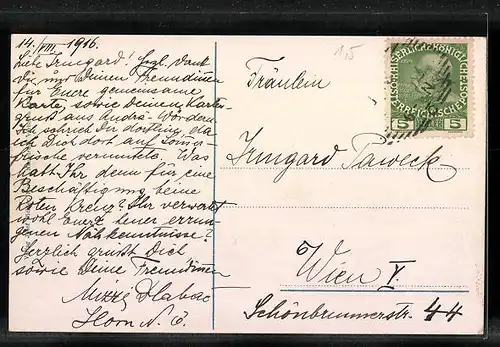 14./VIII. 1916.
Liebe Irmgard! Herzl. Dank
Dir und Deinen Freundinen
für Euere gemeinsame
Karte, sowie Deinen Karten-
gruß aus Andrä-Wördern.
Ich schrieb Dir dorthin, da
ich Dich dort auf Somm-
frische vermutete. Was
habt Ihr denn für eine
Beschäftigung beim
Roten Kreuz? Ihr verwertet
wohl Euere heuer errun-
genen Nähkenntnisse?
Herzlich grüßt Dich
sowie Deine Freundinen
Mizzi Hlabac
Horn N. Ö.
15
Fräulein
Irmgard Paweck
Wien V
Schönbrunnerstr. 44
KAISERLICHE KÖNIGLICHE
ÖSTERREICHISCHE
5 5